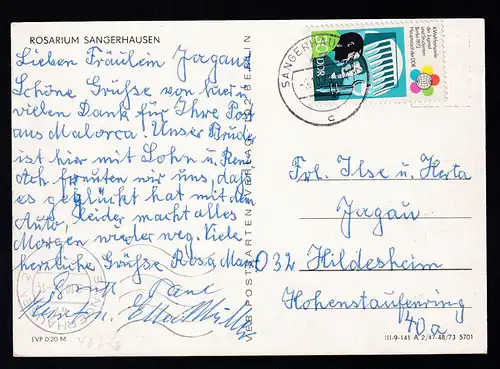 ROSARIUM SANGERHAUSEN
Lieben Fräulein Jagau
Schöne Grüße von hier
vielen Dank für Ihre Post
aus Malorca! Unser Brude
ist hier mit Sohn u.
Ach freuten wir uns, daß
es geglückt hat mit den
Auto, Leider macht alles
Morgen wieder weg. Viele
herzliche Grüße Rosa,
EVP 0,20 M
VEB POSTKARTEN-VERLAG 102 BERLIN
SANGERHAUSEN
c
DDR
X. Weltfestspiele
der Jugend
und Studenten
Berlin 1973
Hauptstadt der DDR
Frl. Ilse u. Herta
Jagau
032 Hildesheim
Hohenstaufenring
40a
III-9-141 A 2/47-48/73 5701